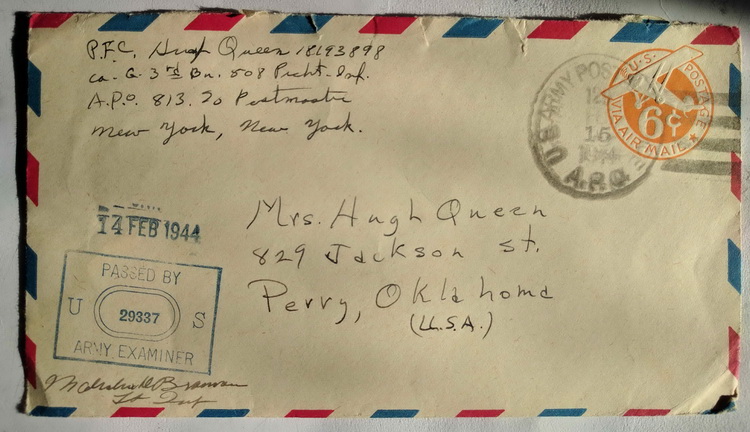 P.F.C. Hugh Queen 18193898
Co. G. 3rd Bn. 508 Prcht. Inf.
A.P.O. 813. % Postmaster
New York, New York.
U.S. ARMY POSTAL
A.P.O.
16
U.S. POSTAGE
6¢
VIA AIR MAIL
14 FEB 1944
Mrs. Hugh Queen
829 Jackson St.
Perry, Oklahoma
(U.S.A.)
PASSED BY
U 29337 S
ARMY EXAMINER
Lt Inf